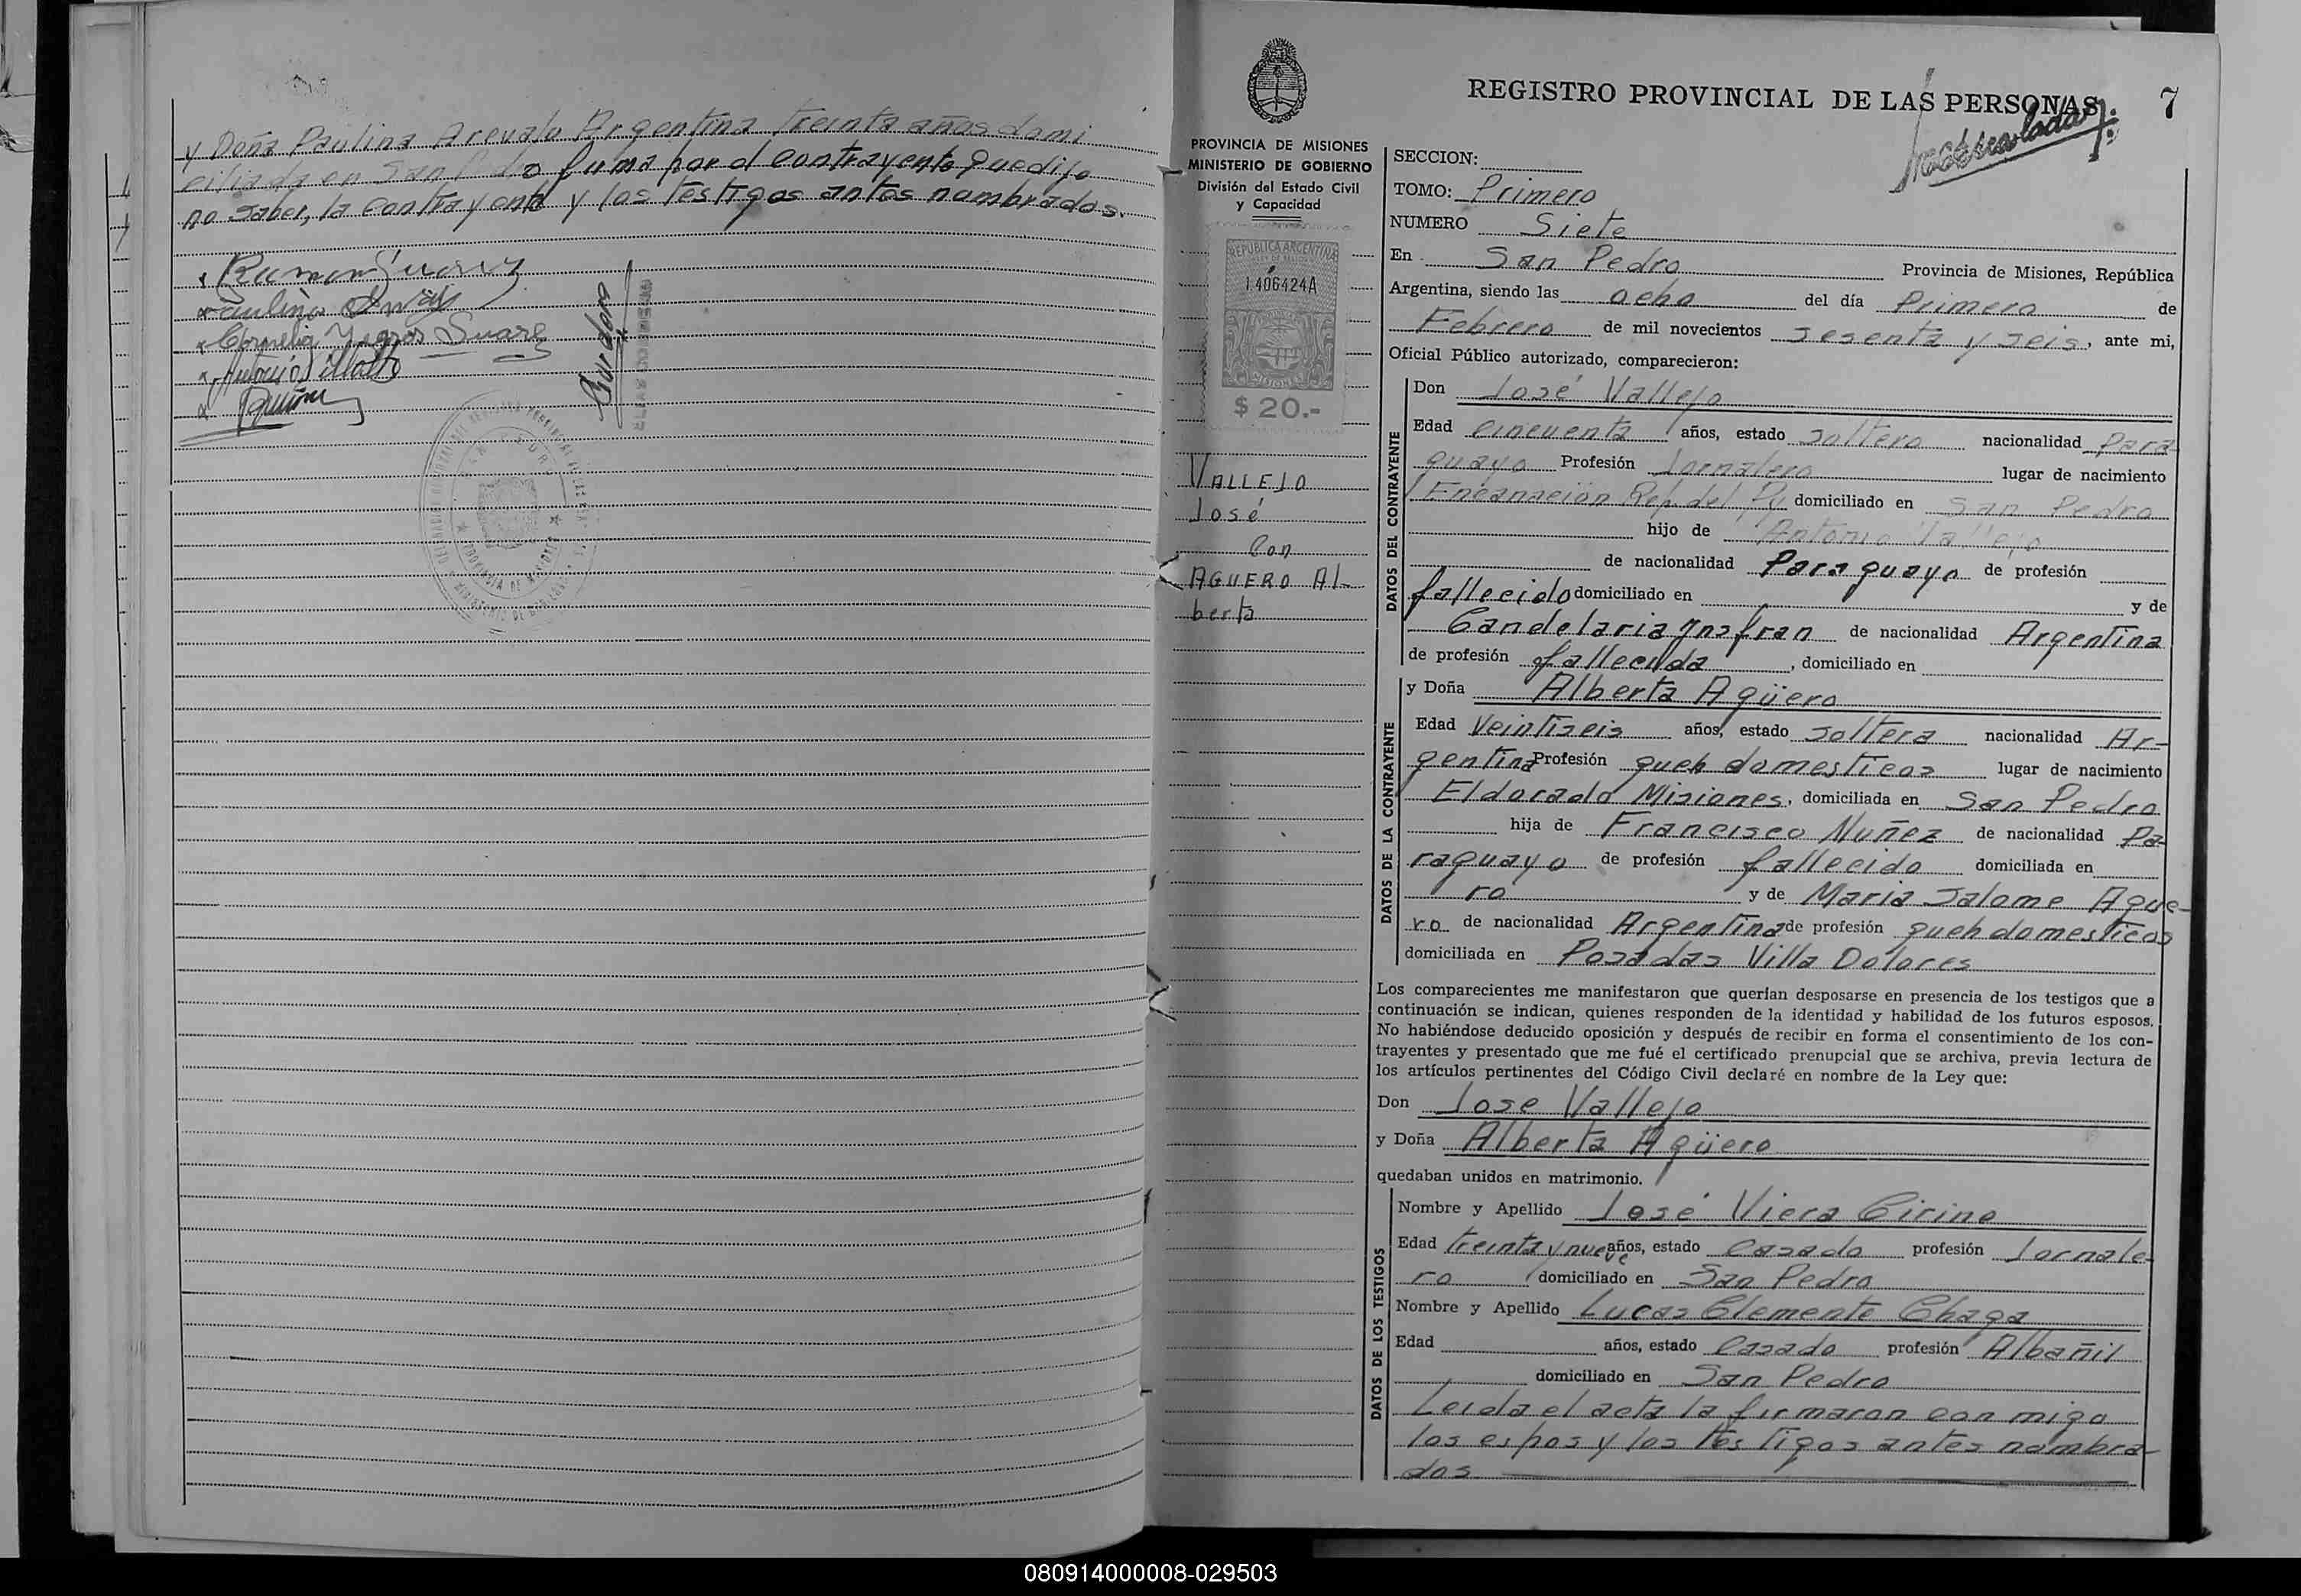 y Doña Paulina Arevalo Argentina treinta años domi
ciliada en San Pedro firma por el contrayente que dijo
no saber, la contrayente y los testigos antes nombrados.
PROVINCIA DE MISIONES
MINISTERIO DE GOBIERNO
División del Estado Civil
y Capacidad
REPUBLICA ARGENTINA
1406424A
MISIONES
$ 20.-
VALLEJO
José
Con
AGUERO Al-
berta
REGISTRO PROVINCIAL DE LAS PERSONAS
7
SECCION:
TOMO: Primero
NUMERO Siete
En San Pedro Provincia de Misiones, República
Argentina, siendo las ocho del día Primero de
Febrero de mil novecientos sesenta y seis, ante mi,
Oficial Público autorizado, comparecieron:
DATOS DEL CONTRAYENTE
Don José Vallejo
Edad cincuenta años, estado soltero nacionalidad Para-
guayo Profesión Jornalero lugar de nacimiento
Encarnación Rep. del Py domiciliado en San Pedro
hijo de Antonio Vallejo
de nacionalidad Paraguayo de profesión
fallecido domiciliado en y de
Candelaria Ynsfran de nacionalidad Argentina
de profesión fallecida, domiciliado en
DATOS DE LA CONTRAYENTE
y Doña Alberta Agüero
Edad Veintiseis años, estado soltera nacionalidad Ar-
gentina Profesión queh domesticos lugar de nacimiento
Eldorado Misiones, domiciliada en San Pedro
hija de Francisco Nuñez de nacionalidad Pa-
raguayo de profesión fallecido domiciliada en
ro y de Maria Salome Ague-
ro de nacionalidad Argentina de profesión queh domesticos
domiciliada en Posadas Villa Dolores
Los comparecientes me manifestaron que querían desposarse en presencia de los testigos que a
continuación se indican, quienes responden de la identidad y habilidad de los futuros esposos.
No habiéndose deducido oposición y después de recibir en forma el consentimiento de los con-
trayentes y presentado que me fué el certificado prenupcial que se archiva, previa lectura de
los artículos pertinentes del Código Civil declaré en nombre de la Ley que:
Don Jose Vallejo
y Doña Alberta Agüero
quedaban unidos en matrimonio.
DATOS DE LOS TESTIGOS
Nombre y Apellido José Viera Cirino
Edad treinta y nueve años, estado casado profesión Jornale-
ro domiciliado en San Pedro
Nombre y Apellido Lucas Clemente Chaga
Edad años, estado casado profesión Albañil
domiciliado en San Pedro
Leida el acta la firmaron con migo
los espos y los testigos antes nombra-
dos
080914000008-029503